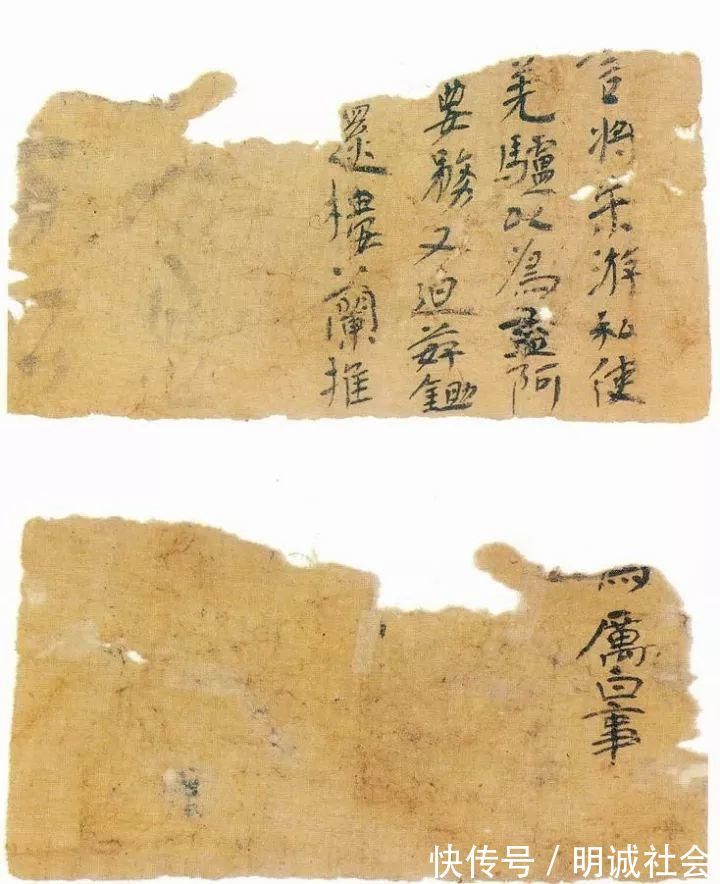 將朱游私使
羌驢以為盡阿
要務又迫薛鋤
還樓蘭推
厲白事
快传号/明诚社会